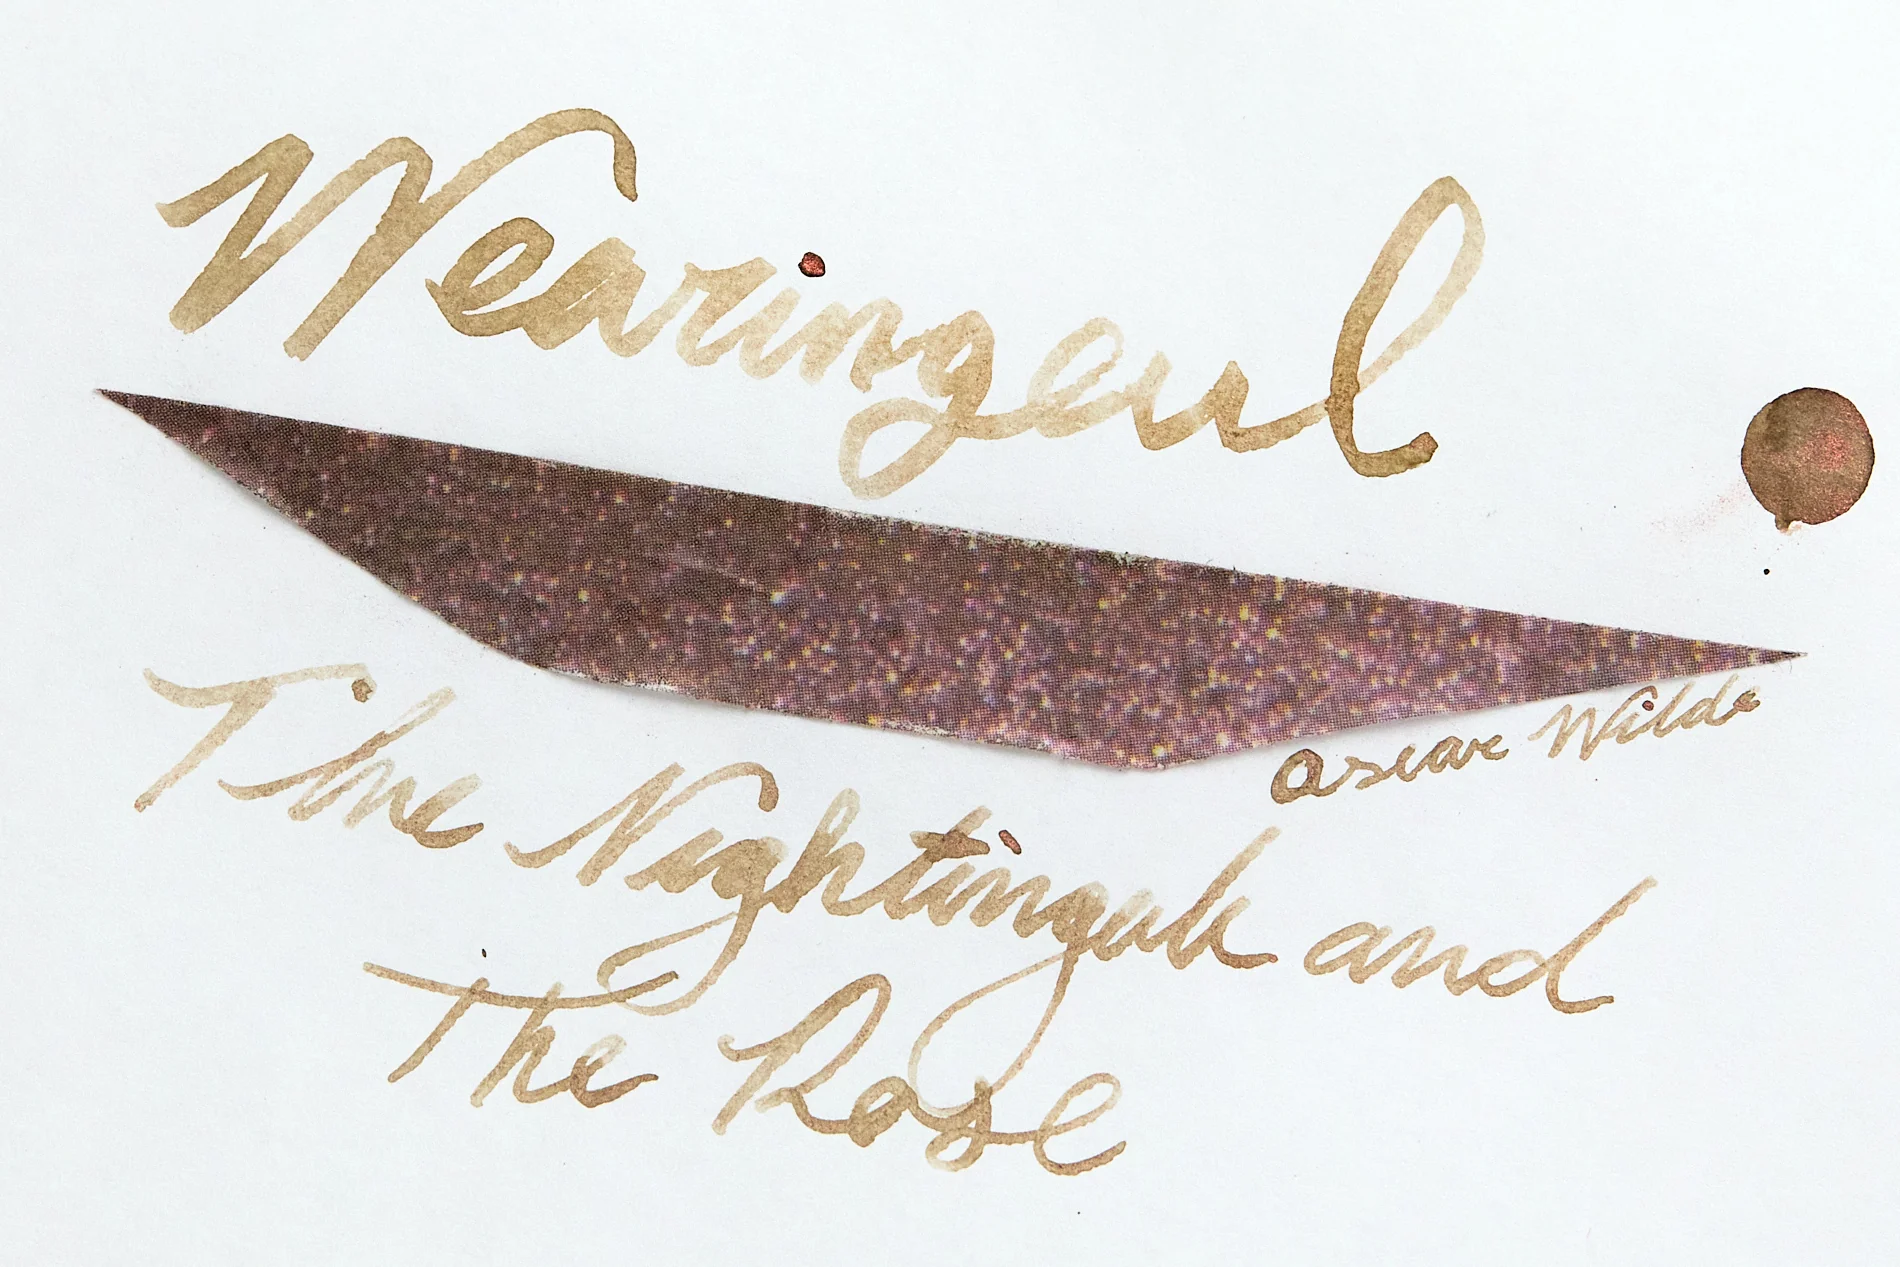 Wearingeul
Oscar Wilde
The Nightingale and
The Rose